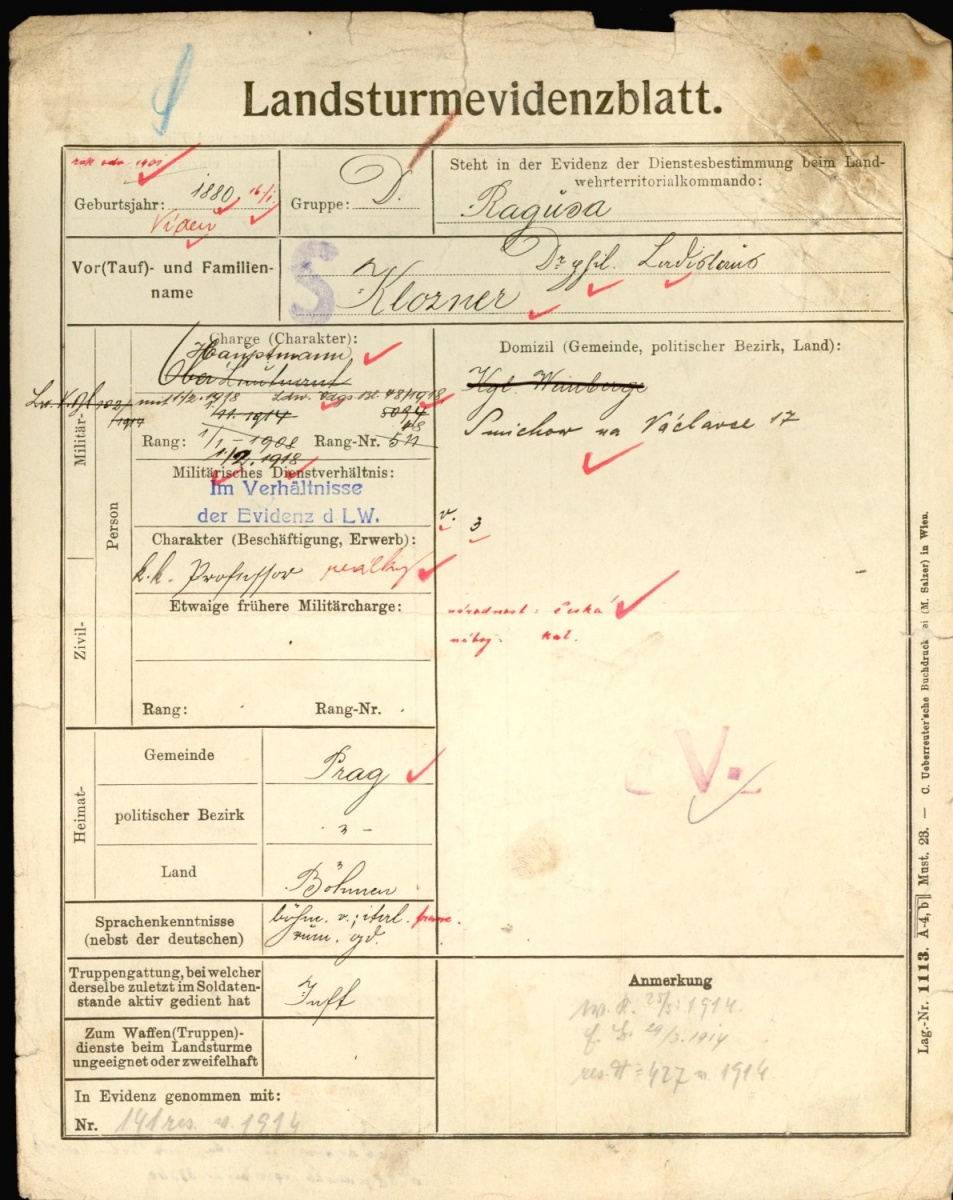 Landsturmevidenzblatt.
Geburtsjahr: 1880 16/I.
Víden
Gruppe: D.
Steht in der Evidenz der Dienstesbestimmung beim Land-
wehrterritorialkommando:
Ragusa
Vor(Tauf)- und Familien-
name
S
Dr. phil. Ladislaus
Klozner
Militär-
Person
Zivil-
Charge (Charakter):
Hauptmann
Oberleutnant
mit 1/2. 1918
1/11. 1914
Rang: 1/1 - 1908 Rang-Nr.
1/2. 1918
Militärisches Dienstverhältnis:
Im Verhältnisse
der Evidenz d LW.
Charakter (Beschäftigung, Erwerb):
k.k. Professor
Etwaige frühere Militärcharge:
Rang: Rang-Nr.
Domizil (Gemeinde, politischer Bezirk, Land):
Kgl. Weinberge
Smichow na Václavce 17
v. 3
národnost: česká
nábož. kat.
V.
Heimat-
Gemeinde
Prag
politischer Bezirk
Land
Böhmen
Sprachenkenntnisse
(nebst der deutschen)
böhm. v.; ital. franc.
rum.
Truppengattung, bei welcher
derselbe zuletzt im Soldaten-
stande aktiv gedient hat
Inft
Zum Waffen(Truppen)-
dienste beim Landsturme
ungeeignet oder zweifelhaft
In Evidenz genommen mit:
Nr. 191 res. v. 1914
Anmerkung
25/3. 1914.
29/3. 1914
res. N = 427 v. 1914.
Lag.-Nr. 1113. A-4, b Must. 23. — C. Ueberreuter'sche Buchdruckerei (M. Salzer) in Wien.